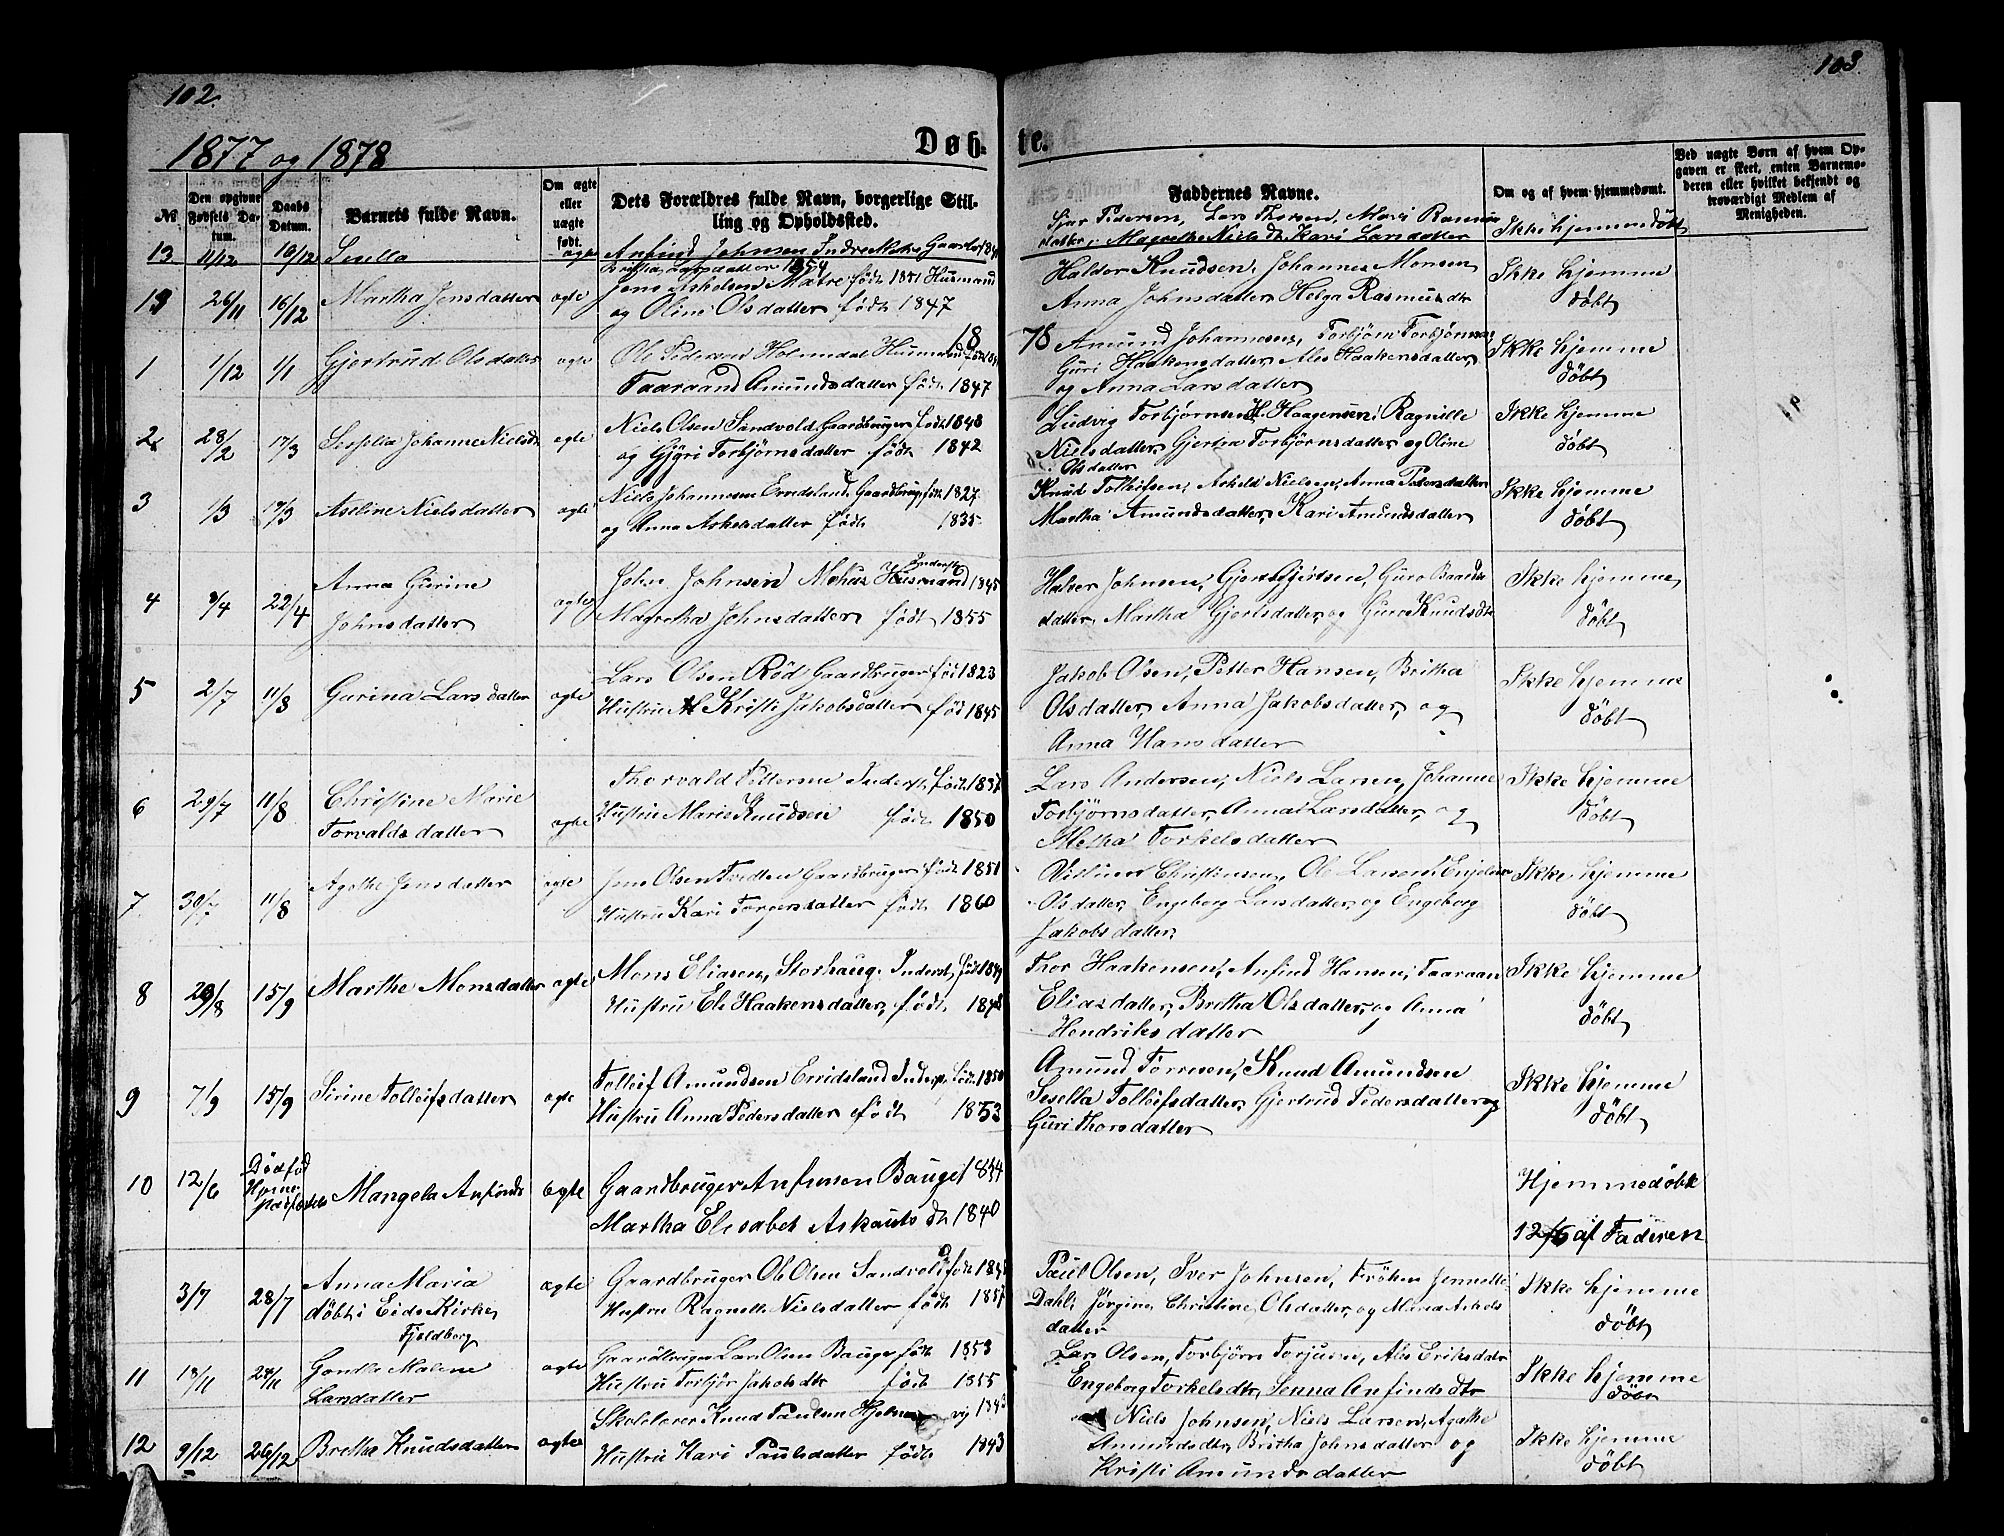 102.
103
1877 og 1878
Døb-
te.
№
Den opgivne Fødsels Da-
tum.
Daabs
Datum.
Barnets fulde Navn.
Om ægte
eller
uægte
født.
Dets Forældres fulde Navn, borgerlige Stil-
ling og Opholdssted.
Faddernes Navne.
Om og af hvem hjemmedømt.
Ved uægte Børn af hvem Op-
gaven er skeet, enten Barnemo-
deren eller hvilket bekjendt og
troværdigt Medlem af
Menigheden.
13 11/12 16/12 Sesella ægte Anfind Johnsen Indre Gaardbr
Pedersen, Lars Thorsen, Mari Rasmus
datter, Magrethe Niels dt. Kari Larsdatter
Ikke hjemmedöbt
Larsdatter 1854
26/11 16/12 Martha Jensdatter ægte Jens Askelsen Matre født 1851 Husmand
og Olini Olsdatter født 1847
Haldor Knudsen, Johannes Monsen
Anna Johnsdatter, Helga Rasmusdtr
Ikke hjemme
döbt
18
78
1 1/12 1/1 Gjertrud Olsdatter ægte Ole Pedersen Holmedal Husmand
Taaraand Amundsdatter født 1847
Amund Johannesen, Torbjörn Torbjörnsen
Guri Haakensdatter, Ales Haakensdatter,
og Anna Larsdatter
Ikke hjemme
döbt
2 28/2 17/3 Sesselia Johanne Nielsdt ægte Niels Olsen Sandvold Gaardbruger født 1848
og Gjøri Torbjørnsdatter født 1842
Ludvig Torbjørnsen H. Haagensen, Ragnille
Nielsdatter, Gjertra Torbjörnsdatter, og Oline
Olsdatter
Ikke hjemme
döbt
3 1/3 17/3 Aseline Nielsdatter ægte Niels Johannesen Erridsland, Gaardbrug, föd 1827
og Anna Askelsdatter födt 1835
Knud Tolleifsen, Askeld Nielsen, Anna Pedersdatter
Martha Amundsdatter, Kari Amundsdatter
Ikke hjemme
döbt
4 8/4 22/4 Anna Gurine
Johnsdatter
ægte John Johnsen Mehus Husmand 1845
Magretha Johnsdatter født 1855
Halvor Johnsen, Gjert Gjertsen, Guro Baards
datter, Martha Gjertsdatter, og Guro Knudsdtr
Ikke hjemme
döbt
5 2/7 11/8 Gurina Larsdatter ægte Lars Olsen Röd Gaardbruger föd 1823
Hustru Kristi Jakobsdatter föd 1845
Jakob Olsen, Petter Hansen, Britha
Olsdatter, Anna Jakobsdatter, og
Anna Hansdatter
Ikke hjemme
döbt
6 29/7 11/8 Christine Marie
Torvaldsdatter
ægte Thorvald Pettersen Inderst, föd 1837
Hustru Marie Knudsen födt 1850
Lars Andersen, Niels Larsen, Johanne
Torbjörnsdatter, Anna Larsdatter, og
Metha Torkelsdatter
Ikke hjemme
döbt
7 30/7 11/8 Agathe Jensdatter ægte Jens Olsen Tvedten Gaardbruger födt 1851
Hustru Kari Torgersdatter födt 1860
Christensen, Ole Larsen,
Olsdatter, Engeborg Larsdatter, og Engeborg
Jakobsdatter,
Ikke hjemme
döbt
8 15/9 Marthe Monsdatter ægte Mons Eliasen, Storhaug, Inderst, föd
Hustru Els Haakensdatter, födt
Thor Haakensen, Anfind Hansen, Taaraan
Eliasdatter, Bretha Olsdatter, og Anna
Hendriksdatter
Ikke hjemme
döbt
9 7/9 15/9 Sirine Tolleifsdatter ægte Tolleif Amundsen Erridsland Inderst, födt
Hustru Anna Pedersdatter födt 1853
Amund Törresen, Knud Amundsen
Sesella Tolleifsdatter, Gjertrud Pedersdatter og
Guri Thorsdatter
Ikke hjemme
döbt
10 12/6 Dödföd Mangela Anfinds ægte Gaardbruger Anfinsen Bauge
Martha Elesabet dt 1840
Hjemmedöbt
12/6 af Faderen
3/7 28/7 Anna Maria
döbt i Eids Kirke,
Fjeldberg
ægte Gaardbruger Ole Olsen Sandvold föd
Hustru Ragnelle Nielsdatter födt 1857
Paul Olsen, Iver Johnsen, Fröken Jennelli
Dahl, Jørgine, Christine Olsdatter, og Maria Askels
datter
Ikke hjemme
döbt
11 18/11 24/11 Malene
Larsdatter
ægte Gaardbruger Lars Olsen Bauge födt 1853
Hustru Torbjör Jakobsdtr födt 1855
Lars Olsen, Torbjörn Torjusen, Ales Eriksdatr
Engeborg Torkelsdtr, Senna Anfindsdtr
Ikke hjemme
döbt
12 9/12 26/12 Bretha Knudsdatter ægte Skolelærer Knud Paulsen
Hustru Kari Paulsdatter födt 1843
Niels Johnsen, Niels Larsen, Agathe
Amundsdtr, Britha Johnsdatter og
Kristi Amundsdatter
Ikke hjemme
döbt